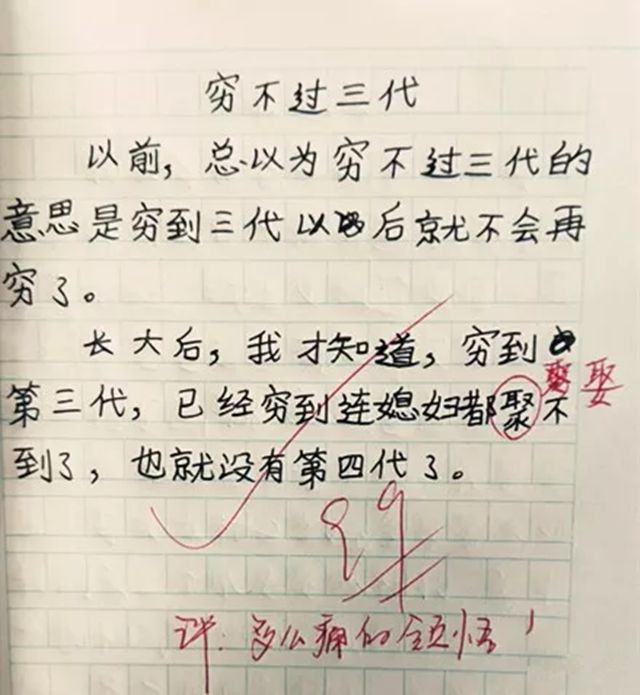 穷不过三代
以前，总以为穷不过三代的
意思是穷到三代以后就不会再
穷了。
长大后，我才知道，穷到
娶
第三代，已经穷到连媳妇都聚不
到了，也就没有第四代了。
99
评：多么痛的领悟！